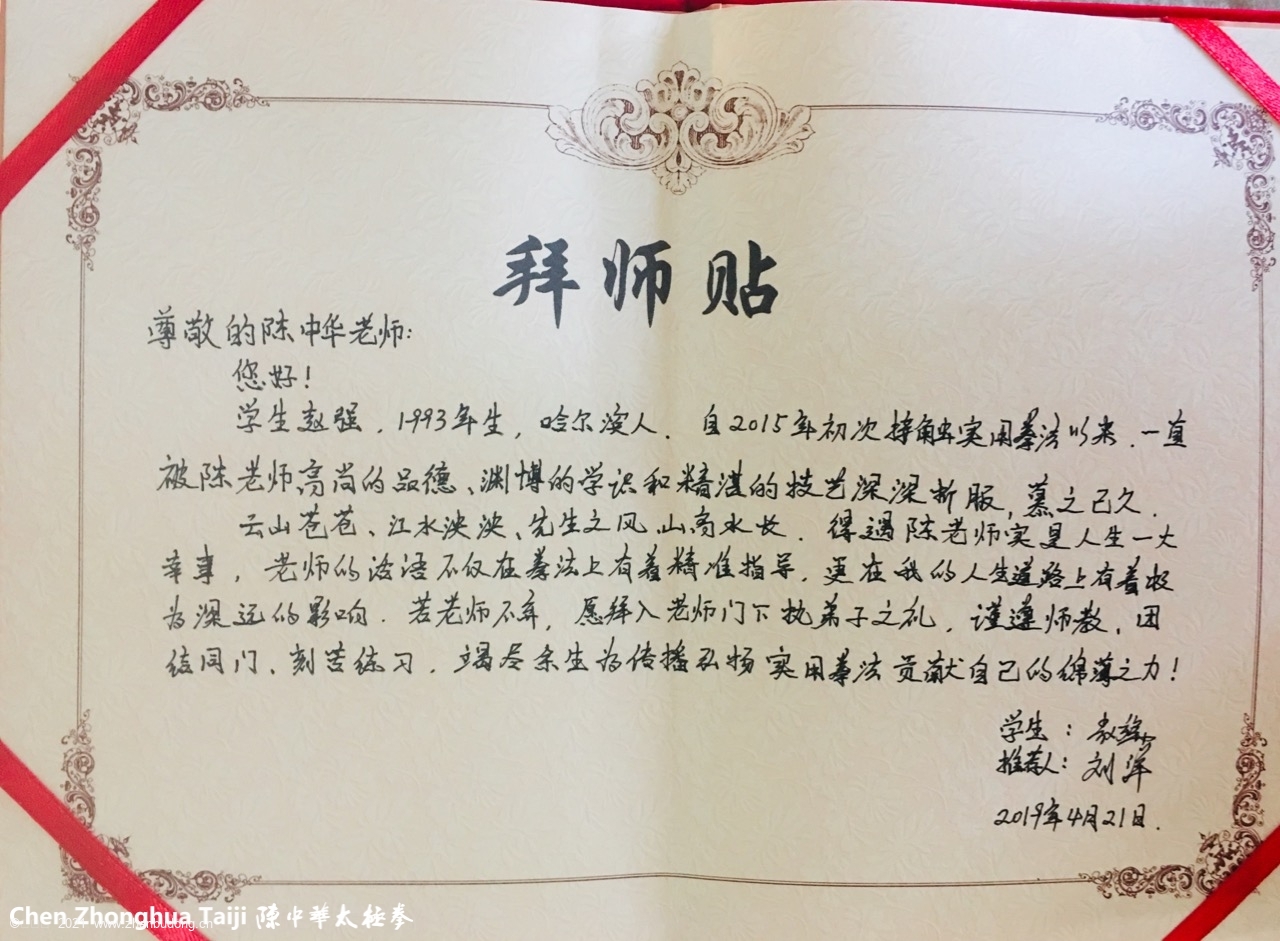 拜师贴
尊敬的陈中华老师:
您好!
学生赵强，1993年生，哈尔滨人. 自2015年初次接触实用拳法以来.一直
被陈老师高尚的品德、渊博的学识和精湛的技艺深深折服，慕之已久.
云山苍苍、江水泱泱、先生之风、山高水长. 得遇陈老师实是人生一大
幸事，老师的话语不仅在拳法上有着精准指导. 更在我的人生道路上有着极
为深远的影响. 若老师不弃，愿拜入老师门下执弟子之礼，谨遵师教、团
结同门、刻苦练习，竭尽余生为传播弘扬实用拳法贡献自己的绵薄之力!
学生：赵强
推荐人：刘洋
2019年4月21日.
Chen Zhonghua Taiji 陳中華太極拳
2021 www.zhenbudong.cn